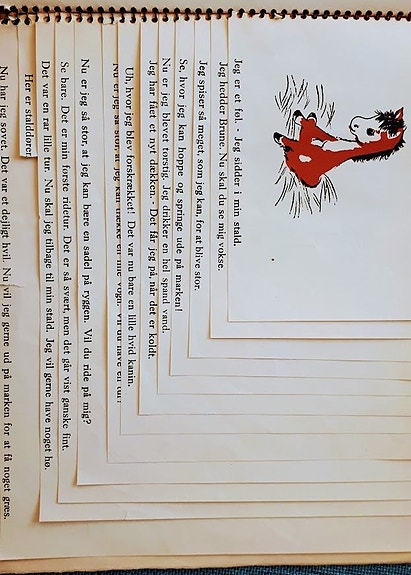 Jeg er et føl. - Jeg sidder i min stald.
Jeg hedder Brune. Nu skal du se mig vokse.
Jeg spiser så meget, som jeg kan, for at blive stor.
Se, hvor jeg kan hoppe og springe ude på marken!
Nu er jeg blevet tørstig. Jeg drikker en hel spand vand.
Jeg har fået et nyt dækken. - Det får jeg på, når det er koldt.
Uh, hvor jeg blev forskrækket! Det var nu bare en lille hvid kanin.
Nu er jeg så stor, at jeg kan trække en lille vogn. Vil du have en tur?
Nu er jeg så stor, at jeg kan bære en sadel på ryggen. Vil du ride på mig?
Se bare. Det er min første ridetur. Det er så svært, men det går vist ganske fint.
Det var en rar lille tur. Nu skal jeg tilbage til min stald. Jeg vil gerne have noget hø.
Her er stalddøren
Nu har jeg sovet. Det var et dejligt hvil. Nu vil jeg gerne ud på marken for at få noget græs.